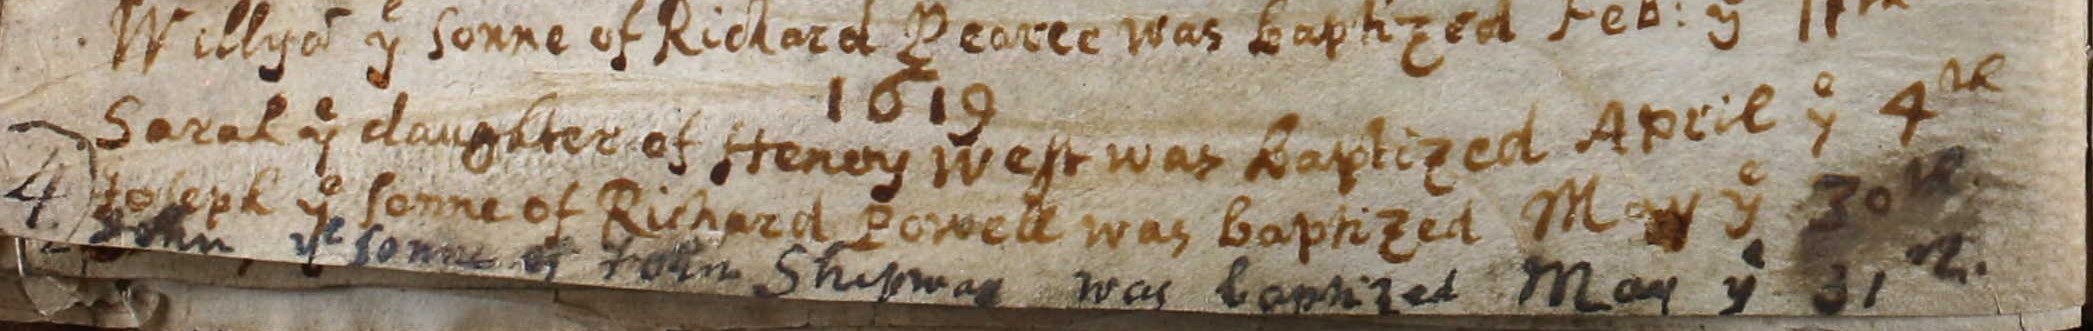 Willyā yͤ sonne of Richard Pearce was baptized Feb: yͤ 11th
1619
Sarah yͤ daughter of Henry West was baptized April yͤ 4th
4 Joseph yͤ sonne of Richard Powell was baptized May yͤ 30th.
John yͤ sonne of John Shipway was baptized May yͤ 31th.